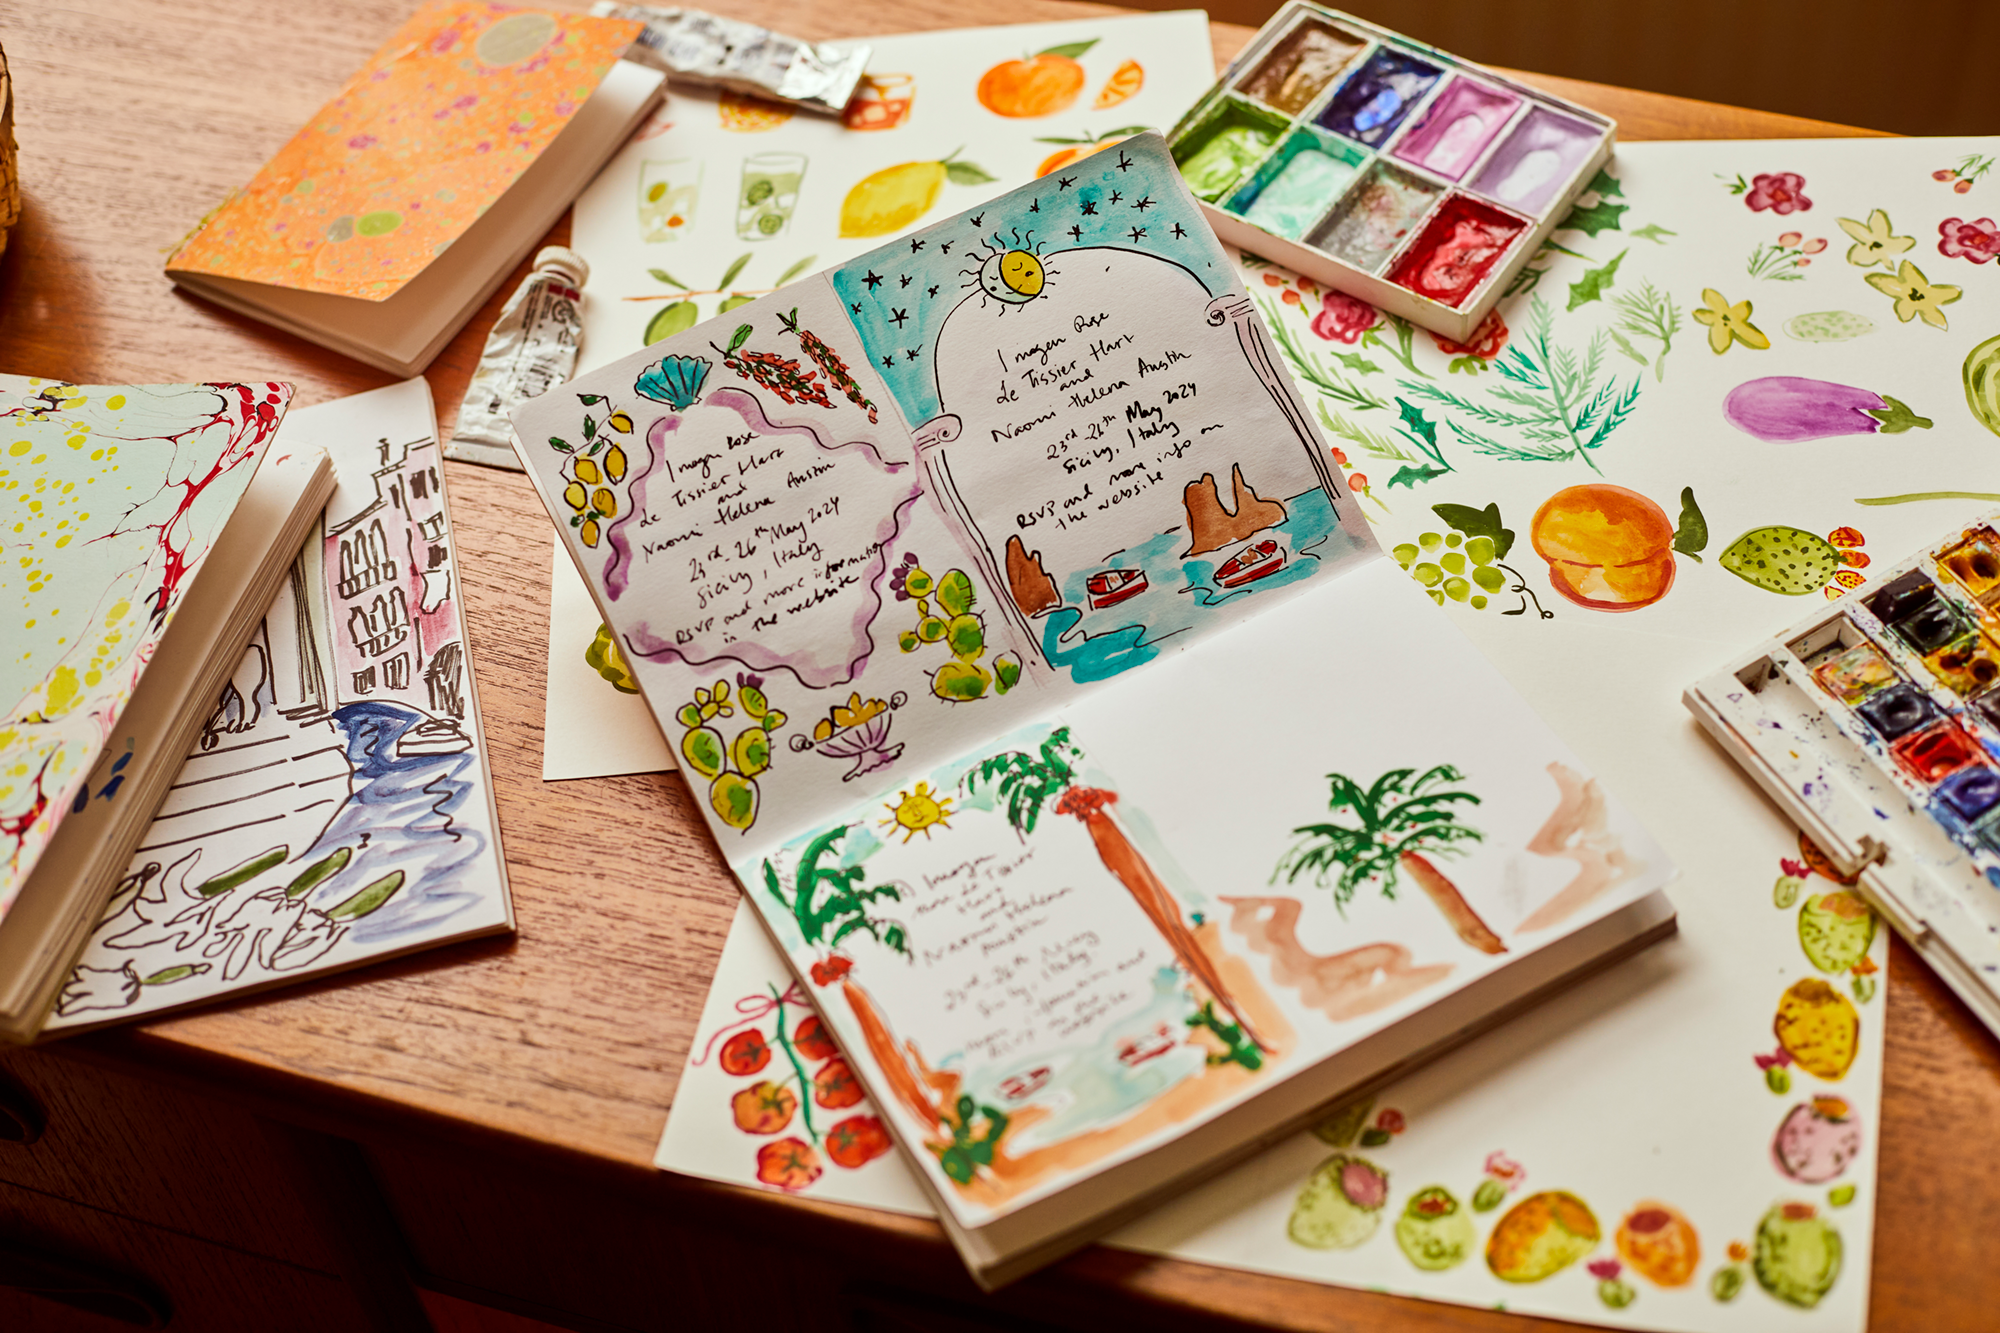 Imogen Rose
Le Tissier Hart
and
Naomi Helena Austin
23rd - 26th May 2024
Sicily, Italy
RSVP and more information
in the website
Imogen Rose
Le Tissier Hart
and
Naomi Helena Austin
23rd - 26th May 2024
Sicily, Italy
RSVP and more info on
the website
Imogen
Rose Le Tissier
Hart
and
Naomi Helena
Austin
23rd - 26th May
Sicily, Italy.
information and
RSVP
website